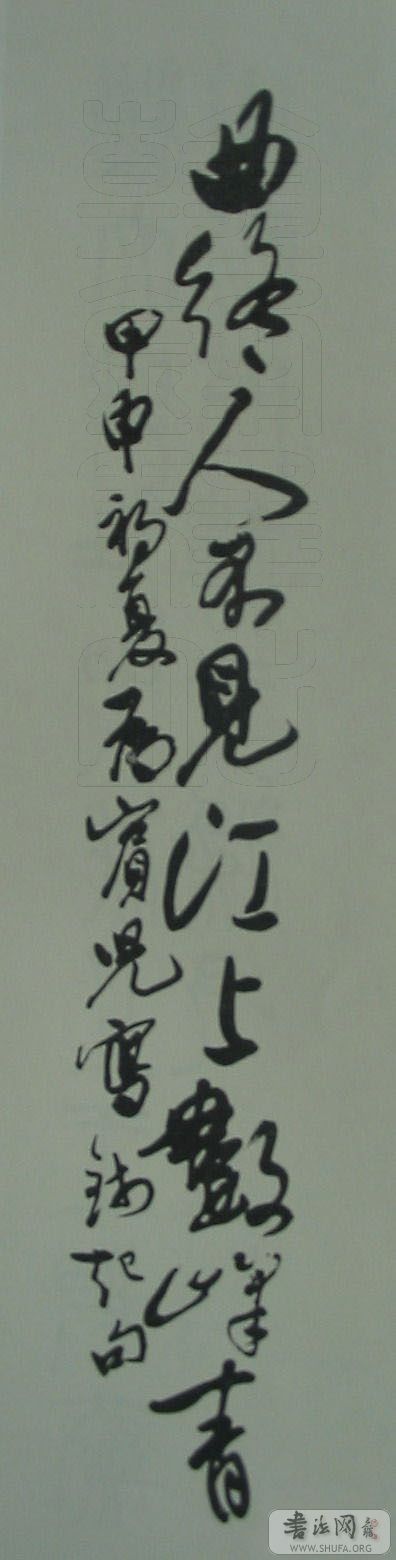 曲終人不見江上數峰青
甲申初夏為賓兒寫錢起句
書法网
WWW.SHUFA.ORG